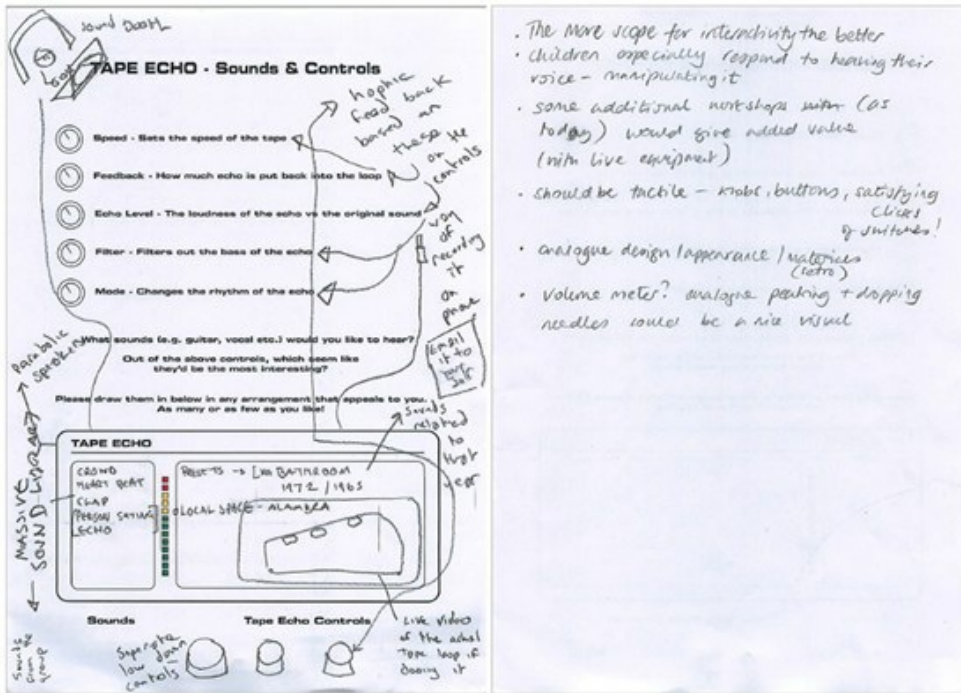 Sound Booth
TAPE ECHO - Sounds & Controls
Speed - Sets the speed of the tape
Feedback - How much echo is put back into the loop
Echo Level - The loudness of the echo vs the original sound
Filter - Filters out the bass of the echo
Mode - Changes the rhythm of the echo
haptic
feed back
based on
these
on the
controls
way
of
recording
it
on
phone
Email
it to
your
self
What sounds (e.g. guitar, vocal etc.) would you like to hear?
Out of the above controls, which seem like
they'd be the most interesting?
Please draw them in below in any arrangement that appeals to you.
As many or as few as you like!
Parabolic
speakers
MASSIVE
SOUND LIBRARY
Sounds
from the
group
Sounds
related to
that
year
TAPE ECHO
CROWD
HEART BEAT
CLAP
PERSON SAYING
ECHO
PRESETS → BATHROOM
1972 / 1965
LOCAL SPACE - ALAMBRA
Sounds
Tape Echo Controls
Separate
low down
controls
Live video
of the actual
Tape loop if
doing it
• The more scope for interactivity the better
• children especially respond to hearing their
voice - manipulating it
• some additional workshops with (as
today) would give added value
(with live equipment)
• should be tactile - knobs, buttons, satisfying
clicks
of switches!
• analogue design / appearance / materials
(retro)
• volume meter? analogue peaking + dropping
needles could be a nice visual